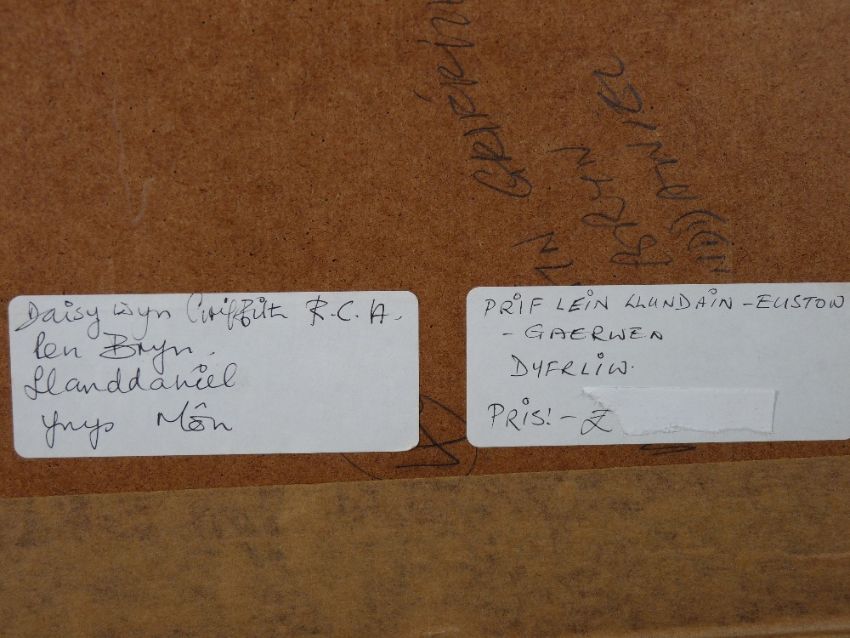 Daisy Wyn Griffith R.C.A.
Pen Bryn.
Llanddaniel
Ynys Môn
PRIF LEIN LLUNDAIN - EUSTON
- GAERWEN
DYFRLIW.
PRIS! - £
BRYN